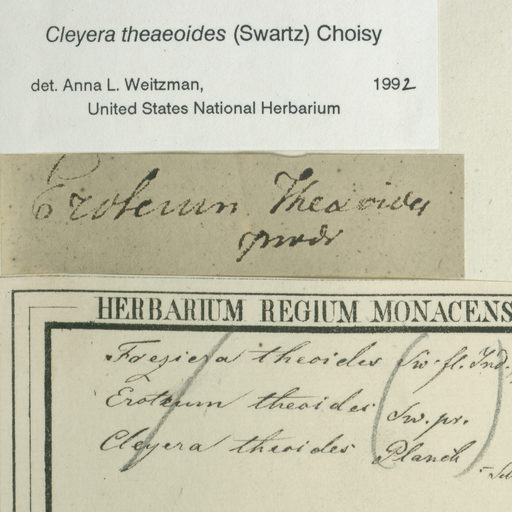 Cleyera theaeoides (Swartz) Choisy
det. Anna L. Weitzman, 1992
United States National Herbarium
Eroteum Theaoides
HERBARIUM REGIUM MONACENS
Freziera theoides Sw. fl. Ind.
Eroteum theoides Sw. pr.
Cleyera theoides Planch